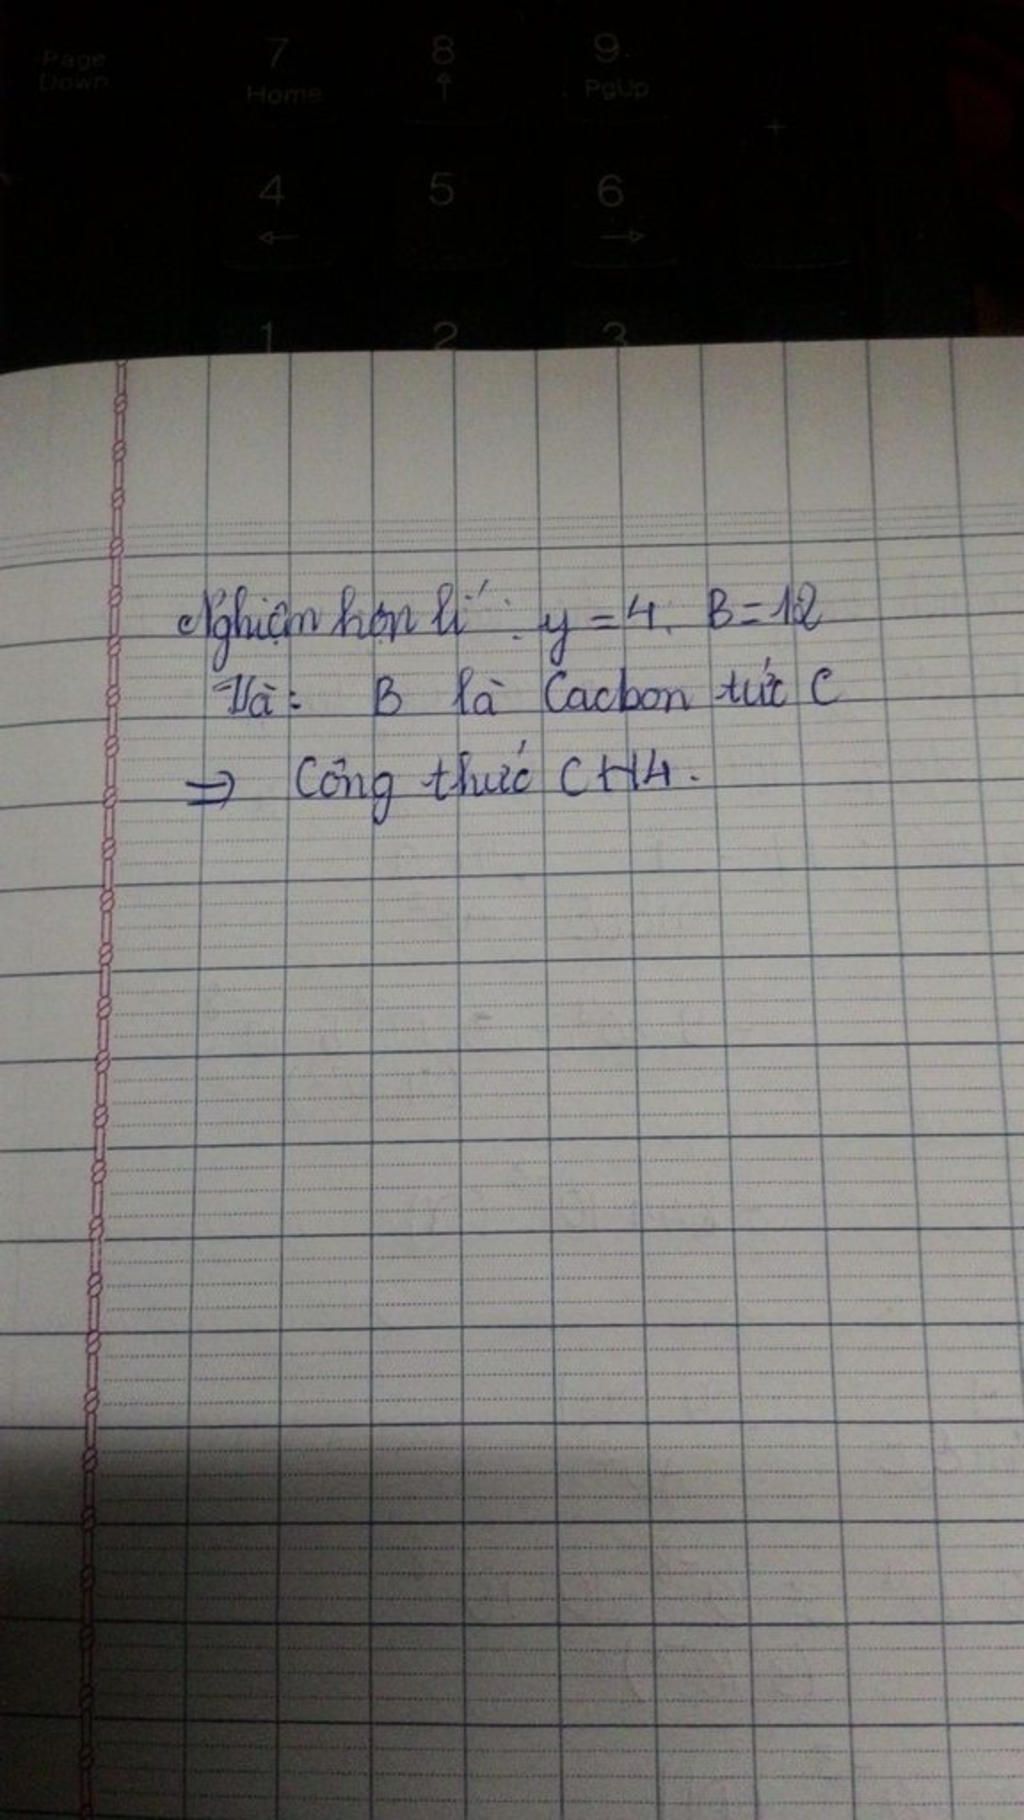 Page Down
7 8 9
Home ↑ PgUp
+
4 5 6
← →
1 2 3
Nghiệm hợn lí : y = 4. B = 12
Và : B là Cacbon tức C
⇒ Công thức CH4.